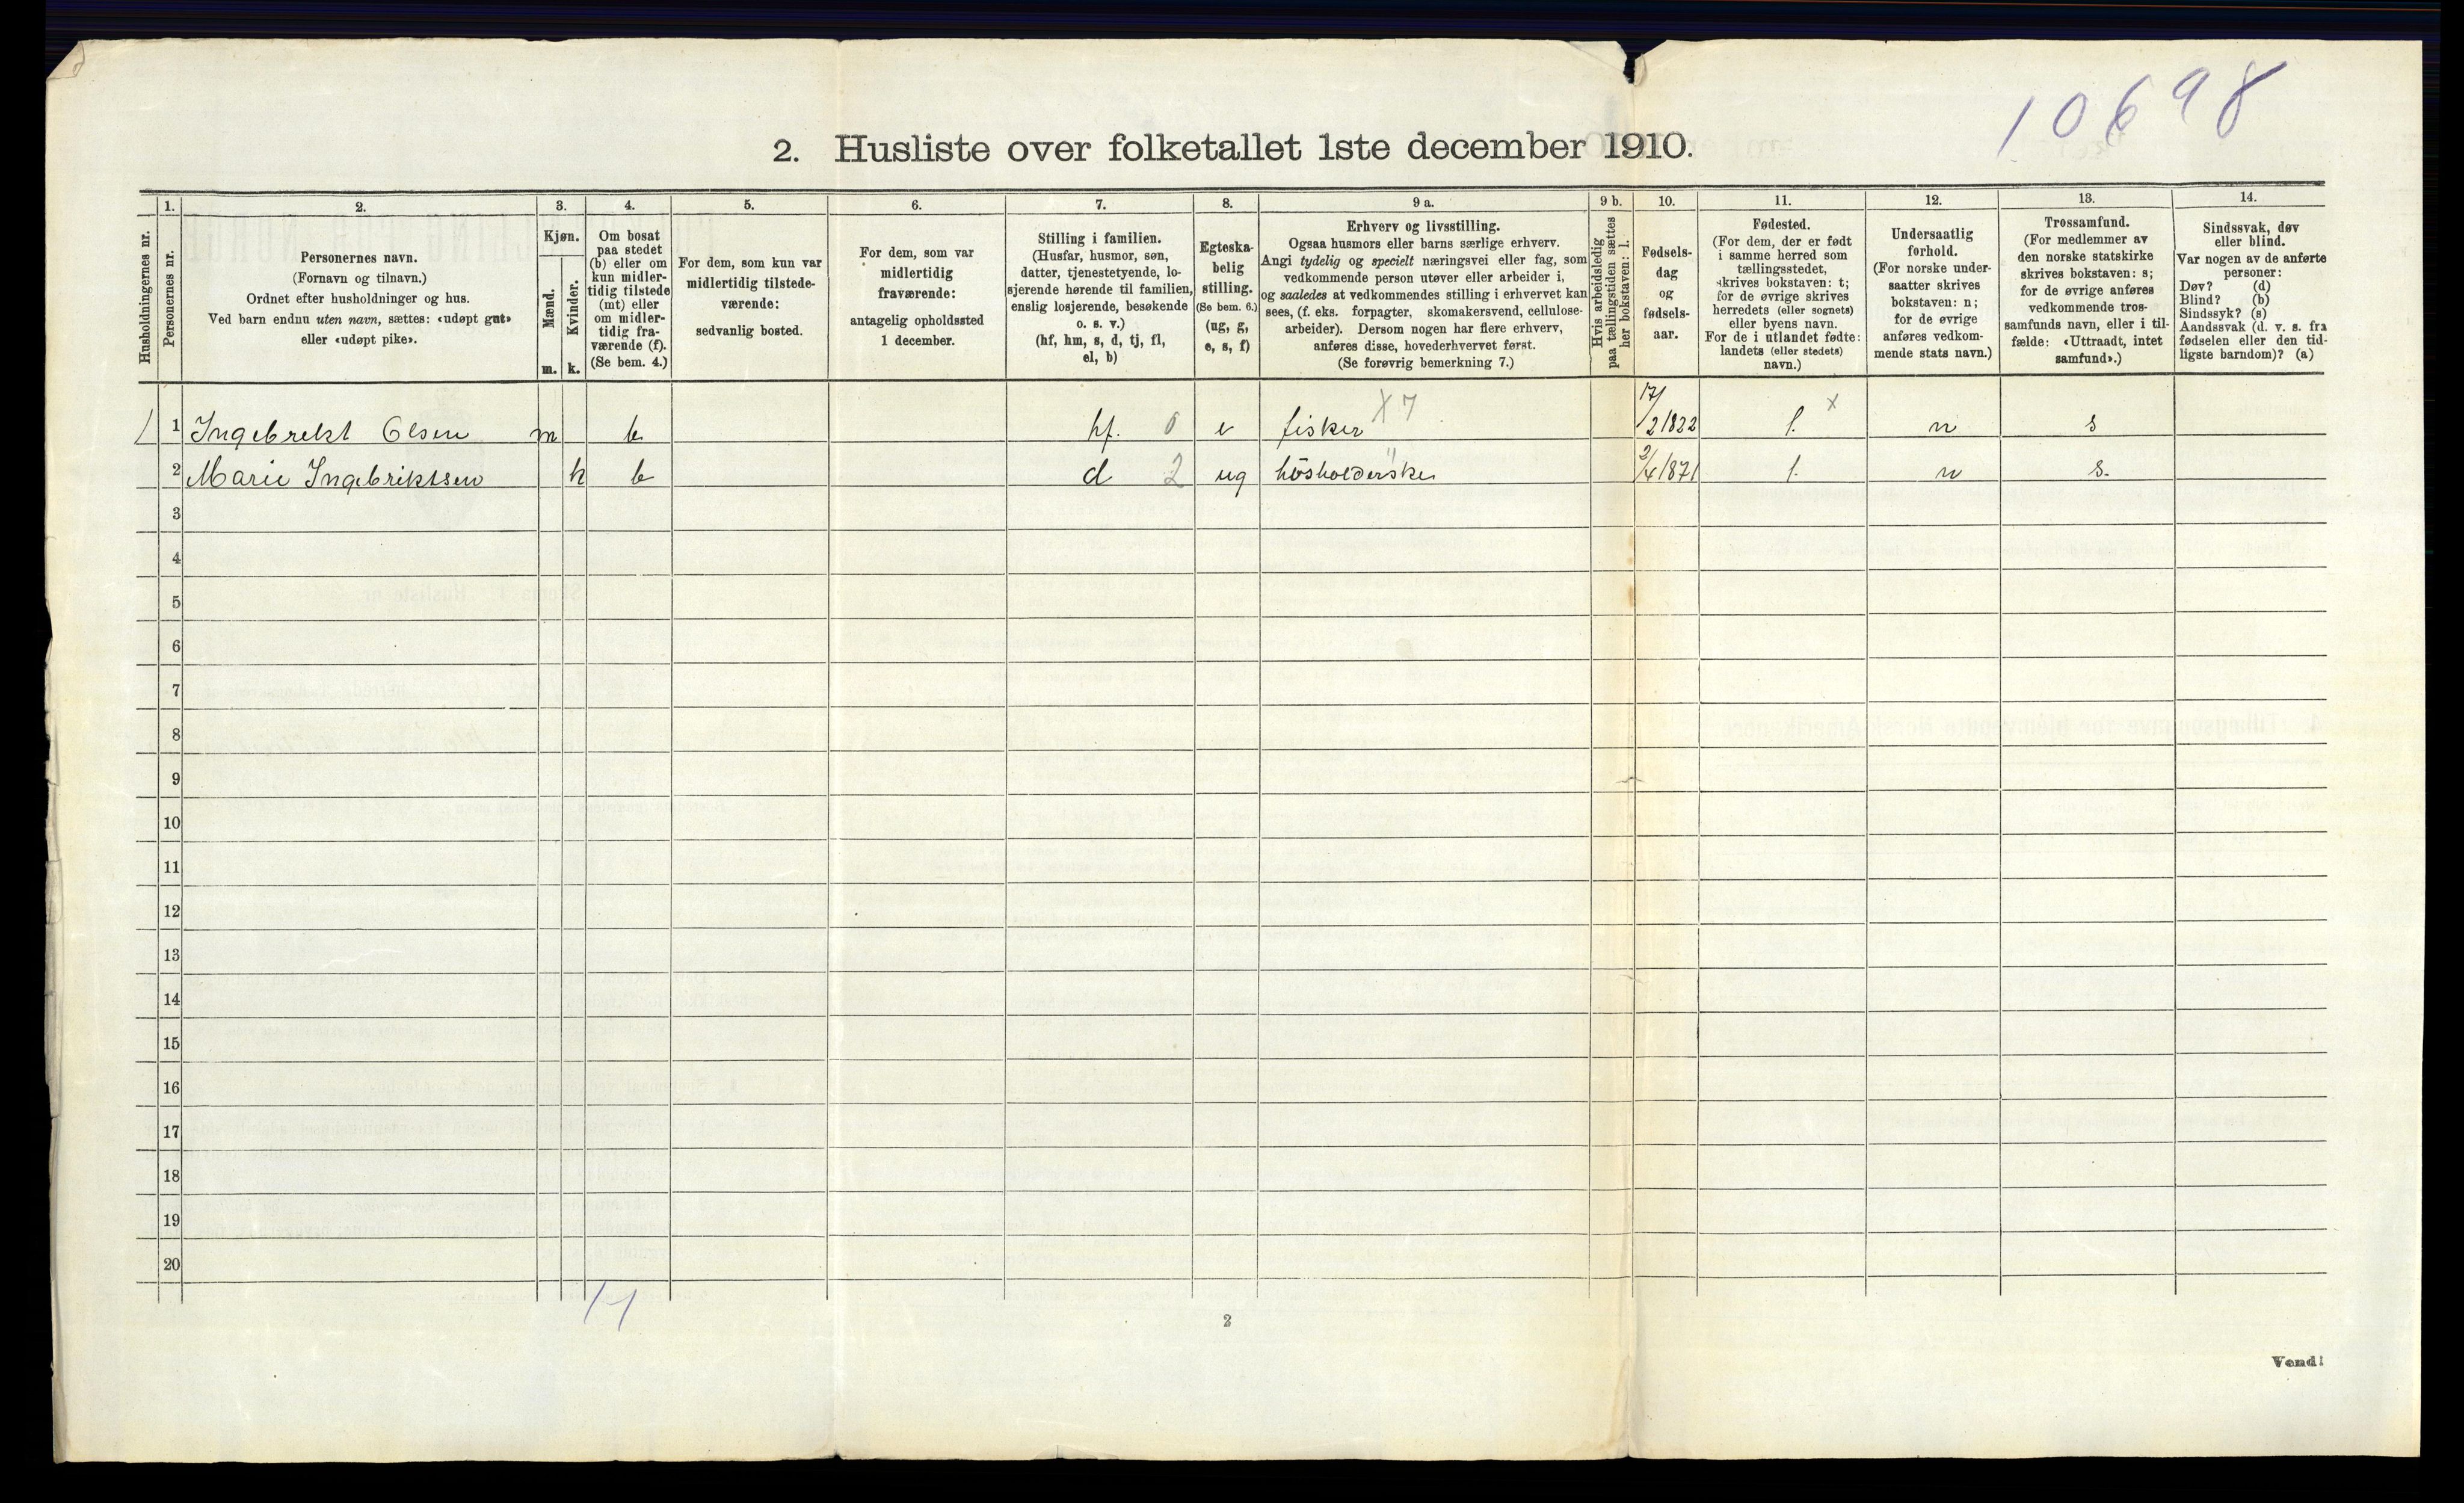 10698
2. Husliste over folketallet 1ste december 1910.
Husholdningernes nr.
1.
Personernes nr.
2.
Personernes navn.
(Fornavn og tilnavn.)
Ordnet efter husholdninger og hus.
Ved barn endnu uten navn, sættes: «udøpt gut»
eller «udøpt pike».
3.
Kjøn.
Mænd.
Kvinder.
m.
k.
4.
Om bosat
paa stedet
(b) eller om
kun midler-
tidig tilstede
(mt) eller
om midler-
tidig fra-
værende (f).
(Se bem. 4.)
5.
For dem, som kun var
midlertidig tilstede-
værende:
sedvanlig bosted.
6.
For dem, som var
midlertidig
fraværende:
antagelig opholdssted
1 december.
7.
Stilling i familien.
(Husfar, husmor, søn,
datter, tjenestetyende, lo-
sjerende hørende til familien,
enslig losjerende, besøkende
o. s. v.)
(hf, hm, s, d, tj, fl,
el, b)
8.
Egteska-
belig
stilling.
(Se bem. 6.)
(ug, g,
e, s, f)
9 a.
Erhverv og livsstilling.
Ogsaa husmors eller barns særlige erhverv.
Angi tydelig og specielt næringsvei eller fag, som
vedkommende person utøver eller arbeider i,
og saaledes at vedkommendes stilling i erhvervet kan
sees, (f. eks. forpagter, skomakersvend, cellulose-
arbeider). Dersom nogen har flere erhverv,
anføres disse, hovederhvervet først.
(Se forøvrig bemerkning 7.)
9 b.
Hvis arbeidsledig
paa tællingstiden sættes
her bokstaven: l.
10.
Fødsels-
dag
og
fødsels-
aar.
11.
Fødested.
(For dem, der er født
i samme herred som
tællingsstedet,
skrives bokstaven: t;
for de øvrige skrives
herredets (eller sognets)
eller byens navn.
For de i utlandet fødte:
landets (eller stedets)
navn.)
12.
Undersaatlig
forhold.
(For norske under-
saatter skrives
bokstaven: n;
for de øvrige
anføres vedkom-
mende stats navn.)
13.
Trossamfund.
(For medlemmer av
den norske statskirke
skrives bokstaven: s;
for de øvrige anføres
vedkommende tros-
samfunds navn, eller i til-
fælde: «Uttraadt, intet
samfund».)
14.
Sindssvak, døv
eller blind.
Var nogen av de anførte
personer:
Døv? (d)
Blind? (b)
Sindssyk? (s)
Aandssvak (d. v. s. fra
fødselen eller den tid-
ligste barndom)? (a)
1 Ingebrekt Olsen m b hf. 0 e fisker X 7 17/2 1822 t. x n s
2 Marie Ingebriktsen k b d 2 ug hŏsholderske 2/4 1871 t. n s.
3
4
5
6
7
8
9
10
11
12
13
14
15
16
17
18
19
20
2
Vend!